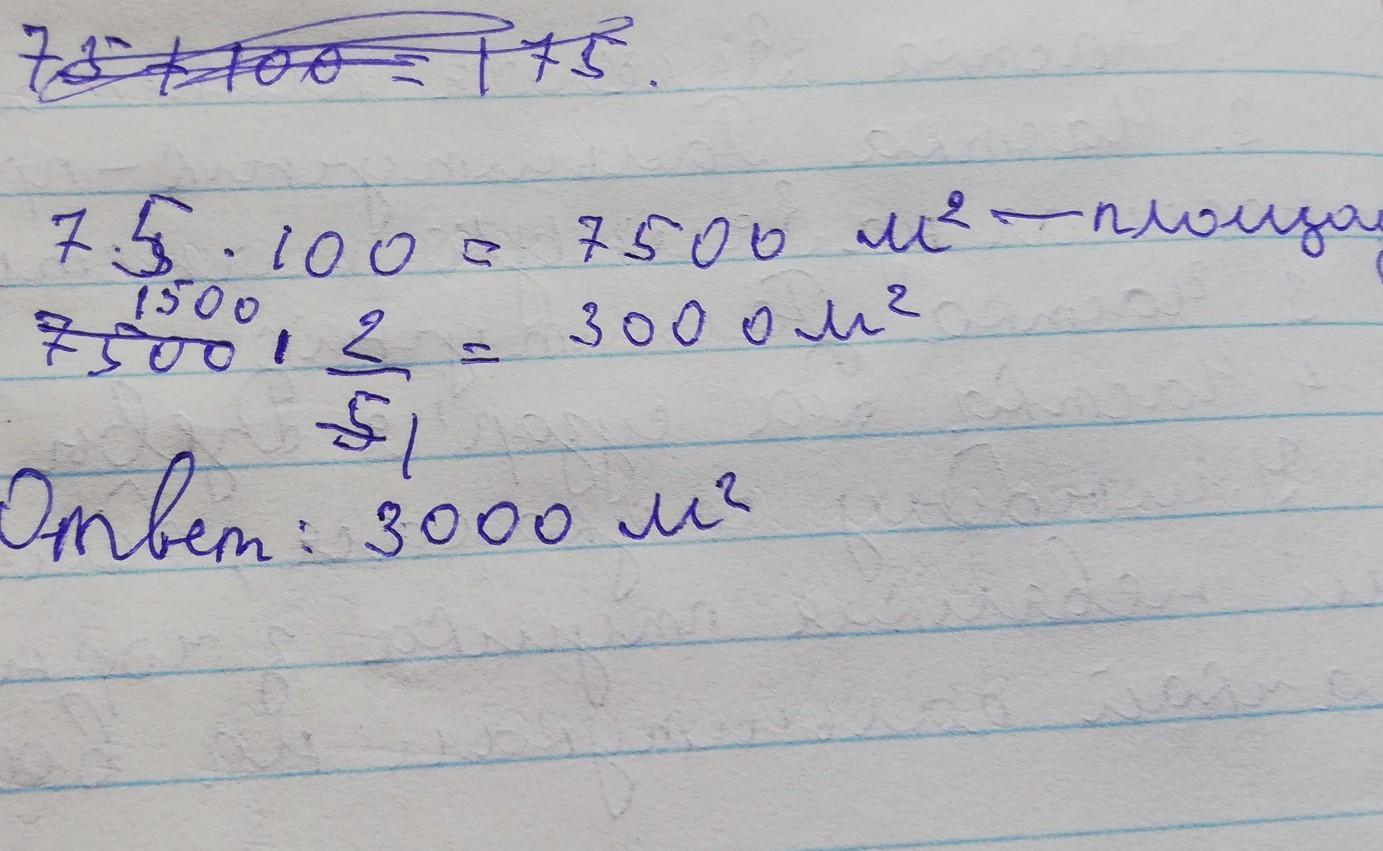 75 + 100 = 175.
75 · 100 = 7500 м² — площад
1500
7500 · 2/5 = 3000 м²
1
Ответ: 3000 м²